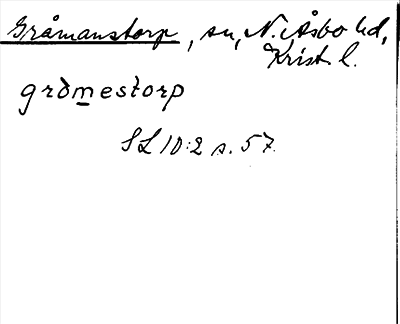 Gråmanstorp, sn, N. Åsbo hd,
Krist. l.
grðmestorp
SL 10:2 s. 57.